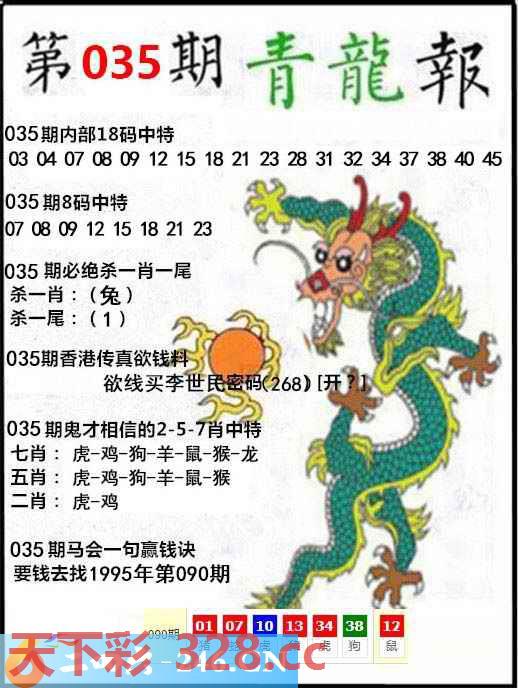 第035期青龍報
035期内部18码中特
03 04 07 08 09 12 15 18 21 23 28 31 32 34 37 38 40 45
035期8码中特
07 08 09 12 15 18 21 23
035期必绝杀一肖一尾
杀一肖：（兔）
杀一尾：（1）
035期香港传真欲钱料
欲线买李世民密码(268) [开？]
035期鬼才相信的2-5-7肖中特
七肖：虎-鸡-狗-羊-鼠-猴-龙
五肖：虎-鸡-狗-羊-鼠-猴
二肖：虎-鸡
035期马会一句赢钱诀
要钱去找1995年第090期
090期 01 07 10 13 34 38 12
虎 狗 鼠
天下彩-328.cc